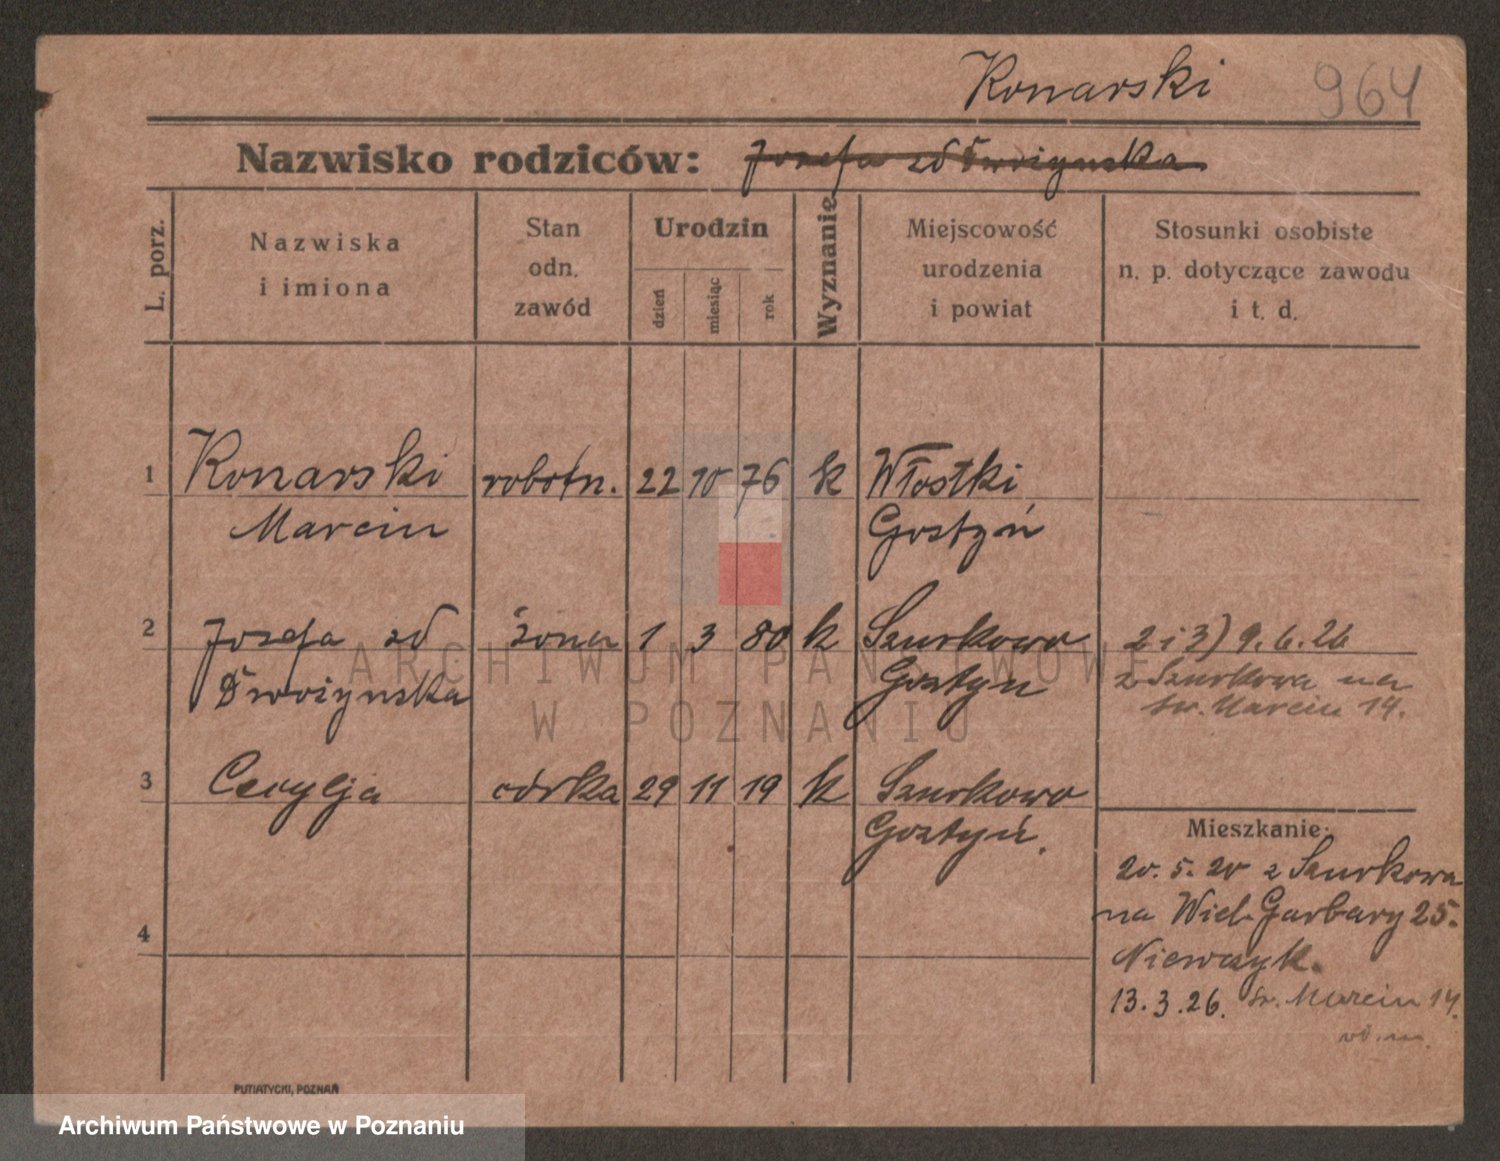 Konarski 964
Nazwisko rodziców: Jozefa zd Tworzynska
L. porz.
Nazwiska
i imiona
Stan
odn.
zawód
Urodzin
dzień
miesiąc
rok
Wyznanie
Miejscowość
urodzenia
i powiat
Stosunki osobiste
n. p. dotyczące zawodu
i t. d.
1 Konarski robotn. 22 10 76 k Włostki
Marcin Gostyń
2 Jozefa zd żona 1 3 80 k Szurkowo 2 i 3) 9.6.26
Gostyn z Szurkowa na
św. Marcin 14.
3 Cecylja córka 29 11 19 k Szurkowo
Gostyń.
Mieszkanie:
20.5.20 z Szurkowa
na Wiel. Garbary 25.
13.3.26. św. Marcin 14.
4
PUTIATYCKI, POZNAŃ
ARCHIWUM PAŃSTWOWE
W POZNANIU
Archiwum Państwowe w Poznaniu